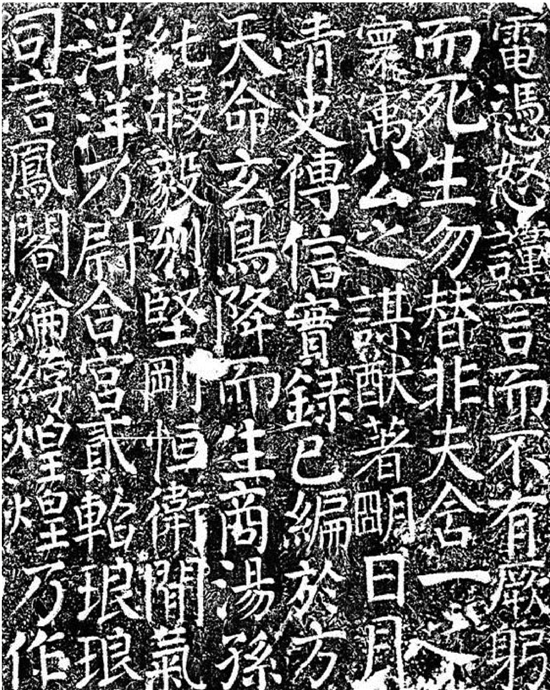 電憑怒謹言而不有厥躬
而死生勿替非夫含一
寰寓公之謀猷著明日月
青史傳信實錄已編於方
天命玄鳥降而生商湯孫
純嘏毅烈堅剛恒衛閒氣
洋洋乃尉合宮貳軺琅琅
司言鳳閣綸綍煌煌乃作